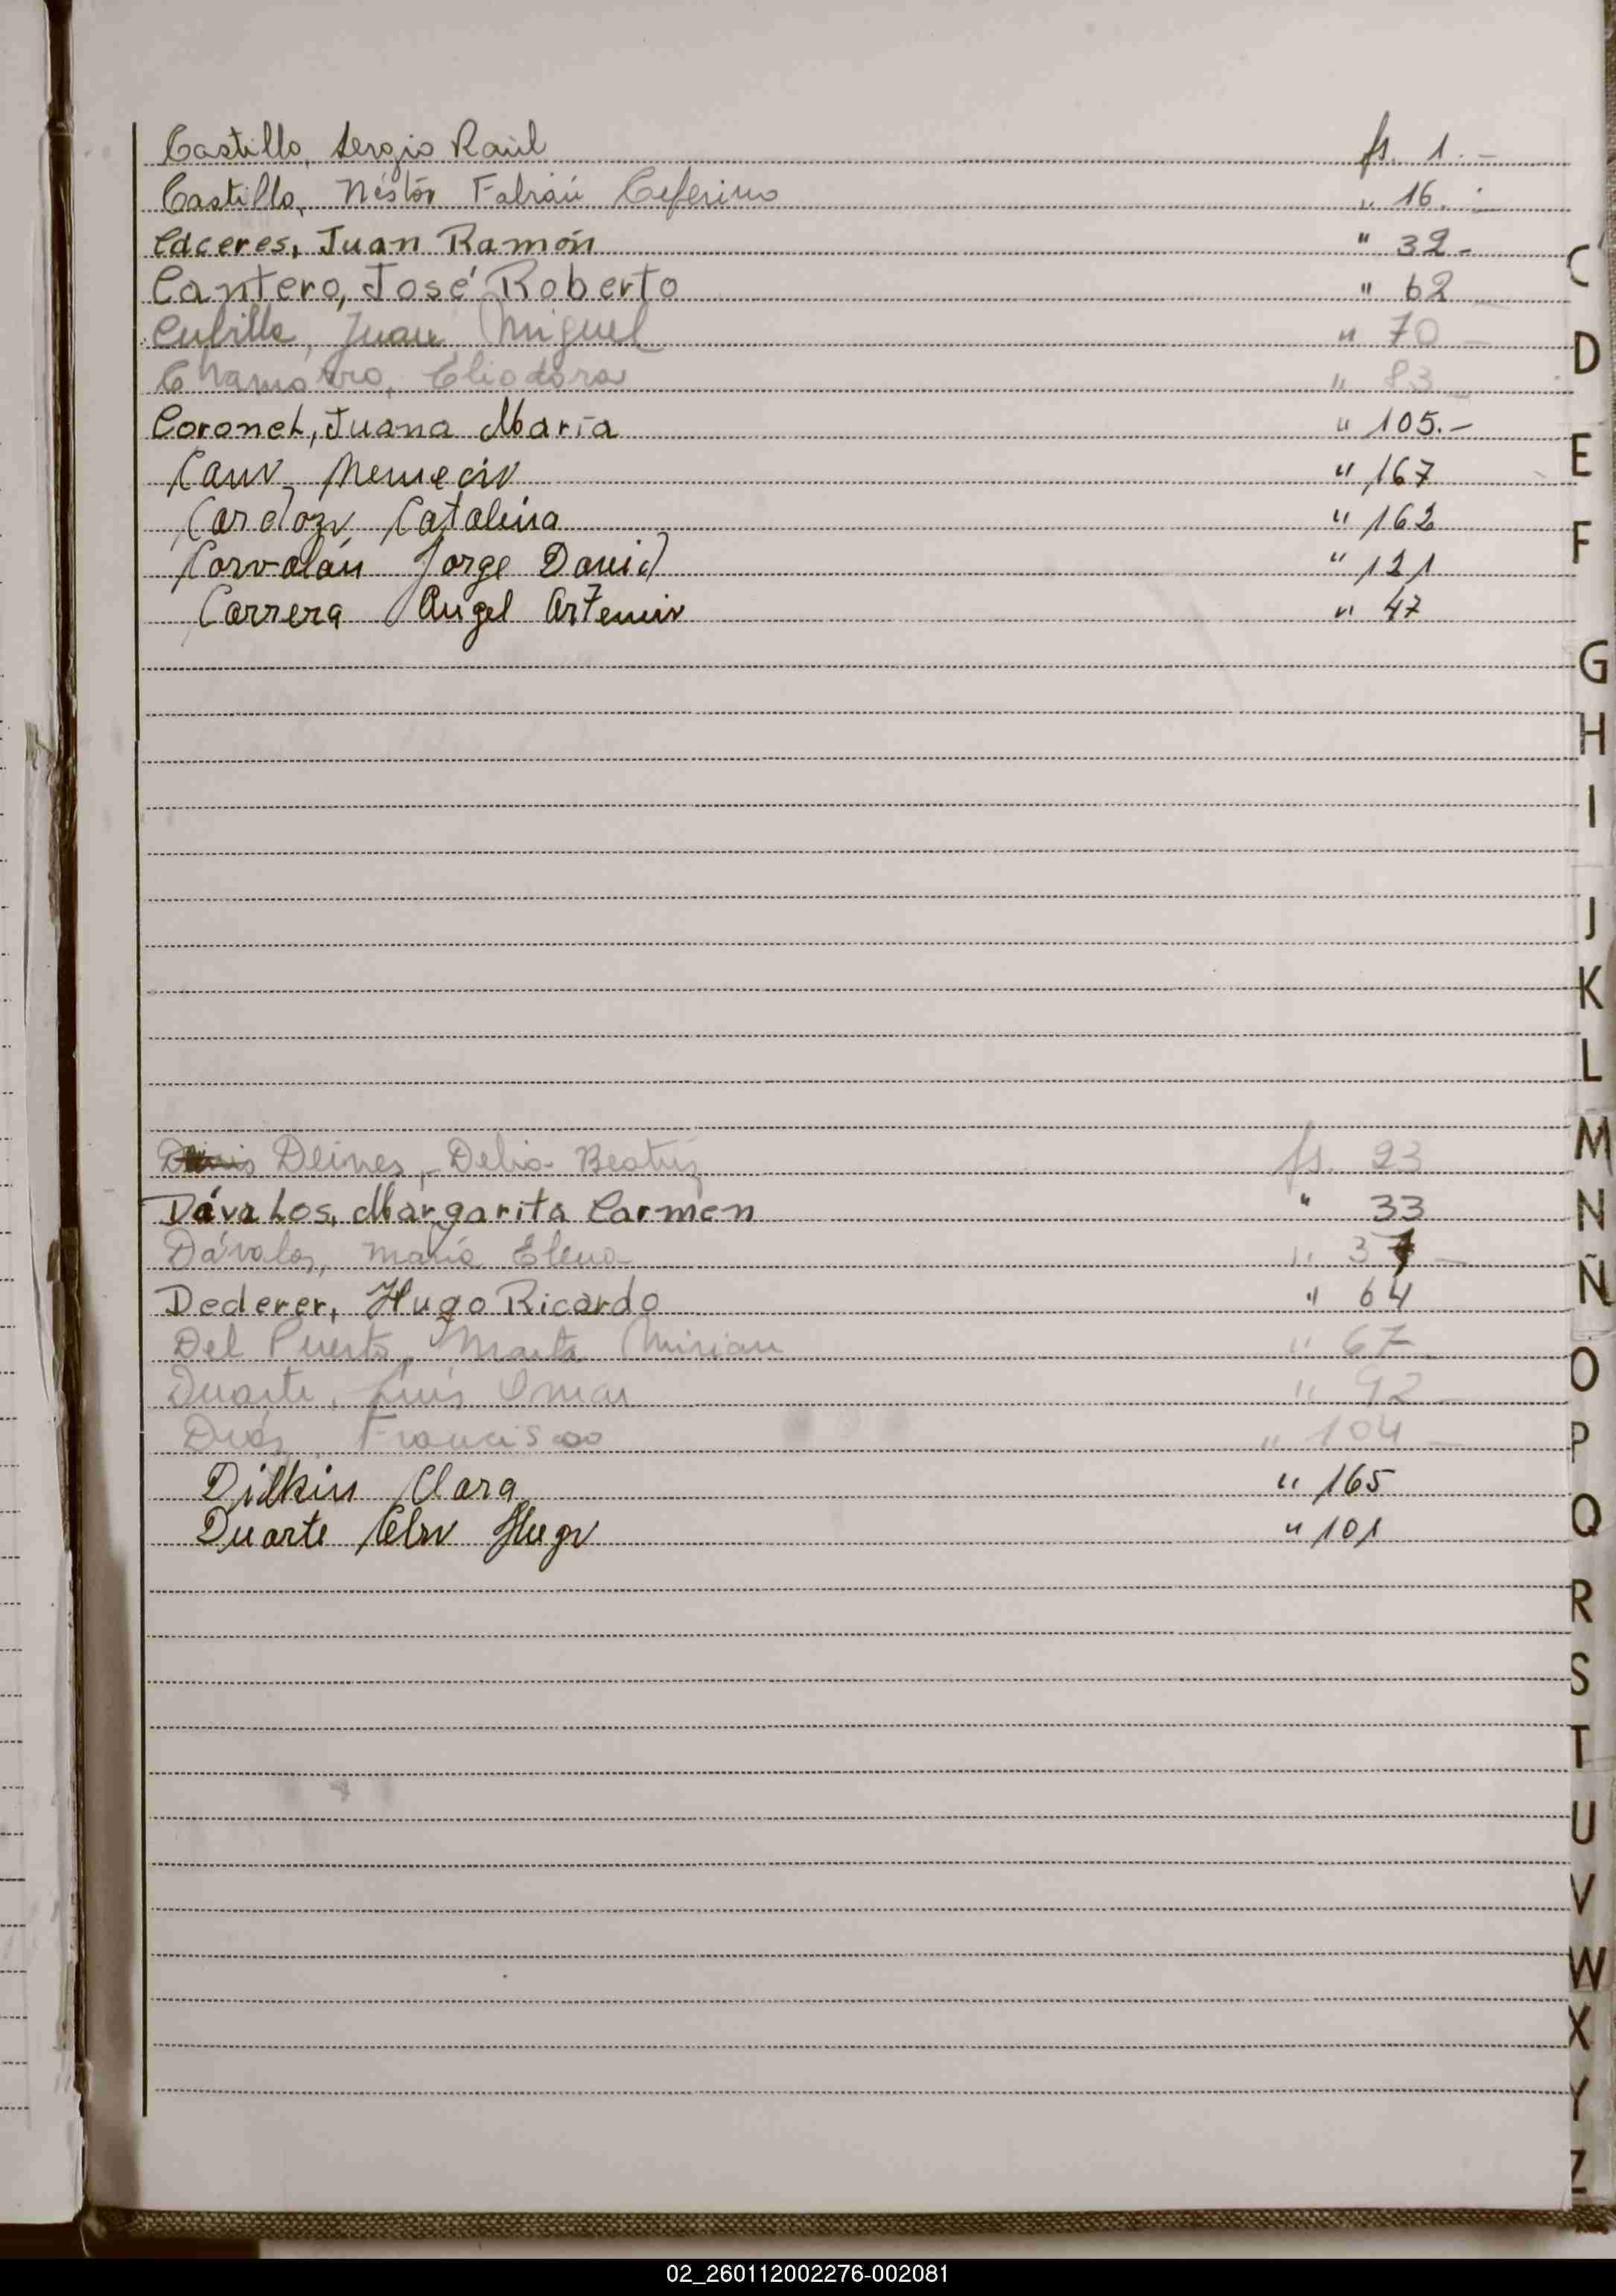 Castillo, Sergio Raúl fs. 1.-
Castillo, Néstor Fabián Ceferino " 16.-
Cáceres, Juan Ramón " 32-
Cantero, José Roberto " 62
Cubilla, Juan Miguel " 70 -
Chamorro, Eliodora " 83 -
Coronel, Juana María " 105.-
Cano Nemecio " 167
Cardozo Catalina " 162
Corvalán Jorge David " 121
Carrera Angel Artemio " 47
Deines, Delia Beatriz fs. 23
Dávalos, Margarita Carmen " 33
Dávalos, María Elena " 37 -
Dederer, Hugo Ricardo " 64
Del Puerto, Marta Mirian " 67
Duarte, Luis Omar " 92 -
Francisco " 104 -
Didkin Clara " 165
Duarte Celso Hugo " 101
C
D
E
F
G
H
I
J
K
L
M
N
Ñ
O
P
Q
R
S
T
U
V
W
X
Y
Z
02_260112002276-002081